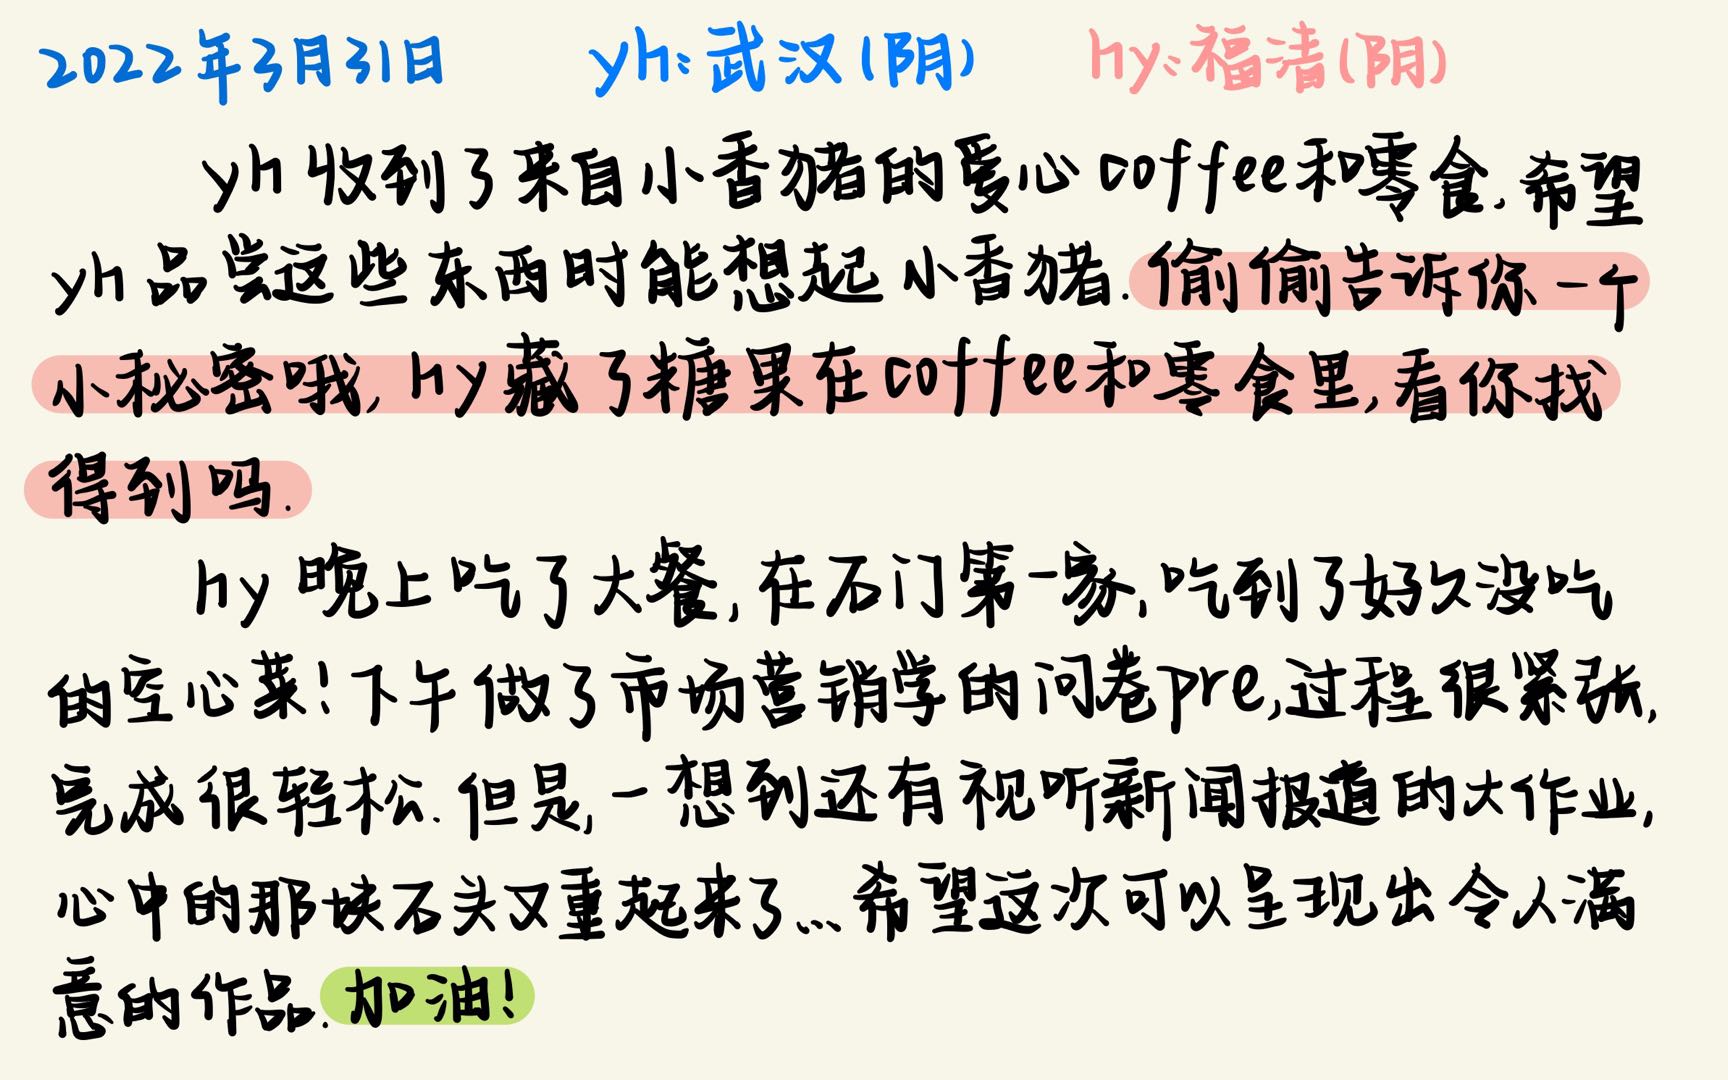 2022年3月31日 yh:武汉(阴) hy:福清(阴)
yh收到了来自小香猪的爱心coffee和零食,希望
yh品尝这些东西时能想起小香猪.偷偷告诉你一个
小秘密哦,hy藏了糖果在coffee和零食里,看你找
得到吗.
hy晚上吃了大餐,在石门第一家,吃到了好久没吃
的空心菜!下午做了市场营销学的问卷pre,过程很紧张,
完成很轻松.但是,一想到还有视听新闻报道的大作业,
心中的那块石头又重起来了...希望这次可以呈现出令人满
意的作品.加油!